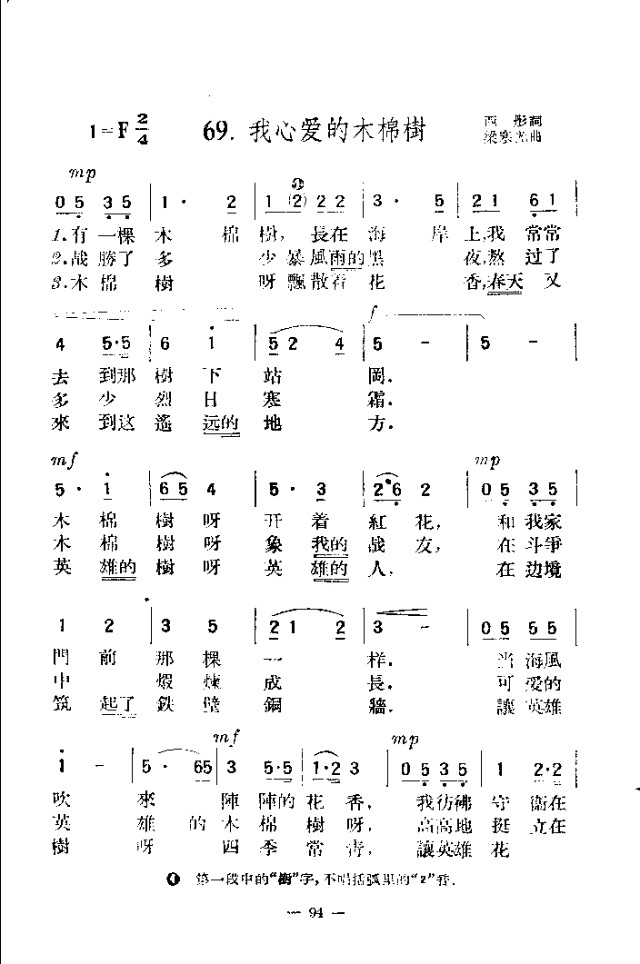 1=F 2/4
69. 我心爱的木棉樹
西彤詞
梁寒光曲
mp
0 5 3 5 | 1· 2 | 1 (2) 2 2 | 3· 5 | 2 1 6 1 |
1.有一棵木棉樹，長在海岸上，我常常
2.战勝了多少暴風雨的黑夜，熬过了
3.木棉樹呀飄散着花香，春天又
f
4 5·5 | 6 1 | 5 2 4 | 5 - | 5 - |
去到那樹下站岡．
多少烈日寒霜．
來到这遙远的地方．
mf mp
5· 1 | 6 5 4 | 5· 3 | 2 6 2 | 0 5 3 5 |
木棉樹呀开着紅花，和我家
木棉樹呀象我的战友，在斗爭
英雄的樹呀英雄的人，在边境
1 2 | 3 5 | 2 1 2 | 3 - | 0 5 5 5 |
門前那棵一样．当海風
中煅煉成長．可爱的
筑起了鉄壁鋼牆．讓英雄
mf mp
1 - | 5· 6 5 | 3 5·5 | 1·2 3 | 0 5 3 5 | 1 2·2 |
吹來陣陣的花香，我彷彿守衛在
英雄的木棉樹呀，高高地挺立在
樹呀四季常青，讓英雄花
❶ 第一段中的“樹”字，不唱括弧里的“2”音．
— 94 —